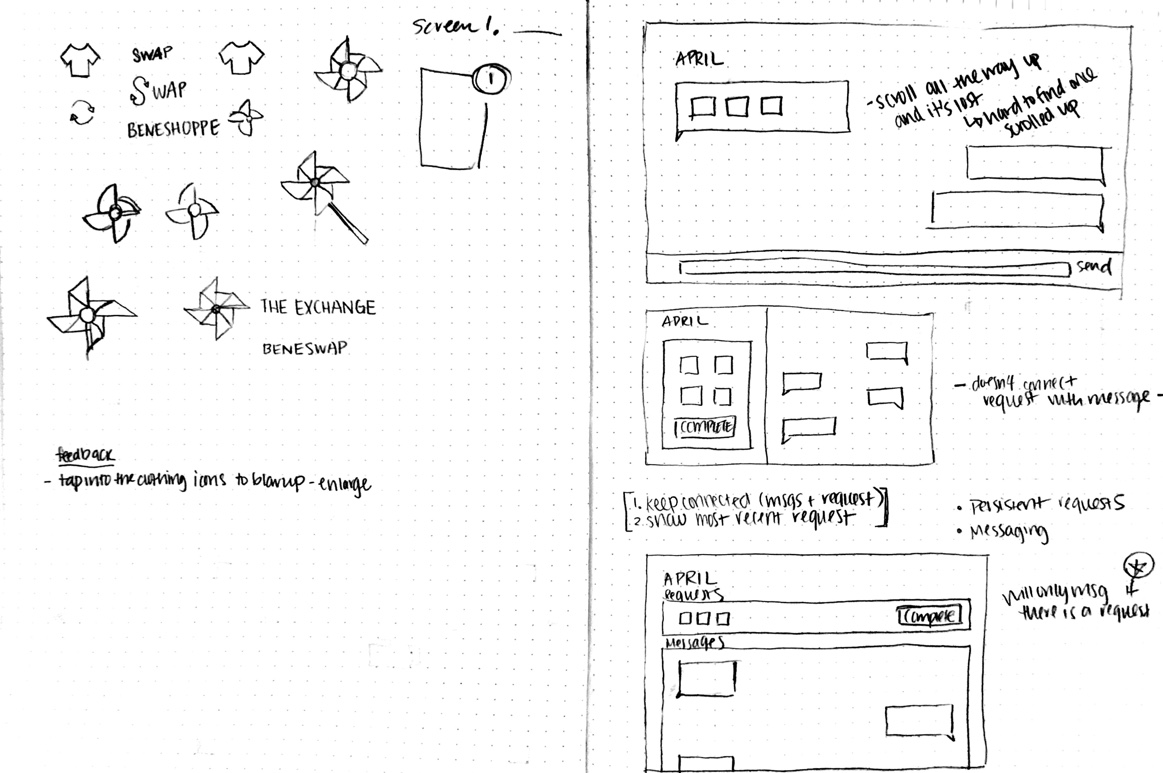 SWAP
SWAP
BENESHOPPE
Screen 1.
1
THE EXCHANGE
BENESWAP
feedback
- tap into the clothing icons to blowup - enlarge
APRIL
- scroll all the way up
and it's lost
↳ hard to find one
scrolled up
send
APRIL
COMPLETE
- doesn't connect
request with message -
[1. keep connected (msgs + request)]
[2. show most recent request]
• Persistent requests
• Messaging
APRIL
Requests
Complete
Messages
Will only msg if
there is a request